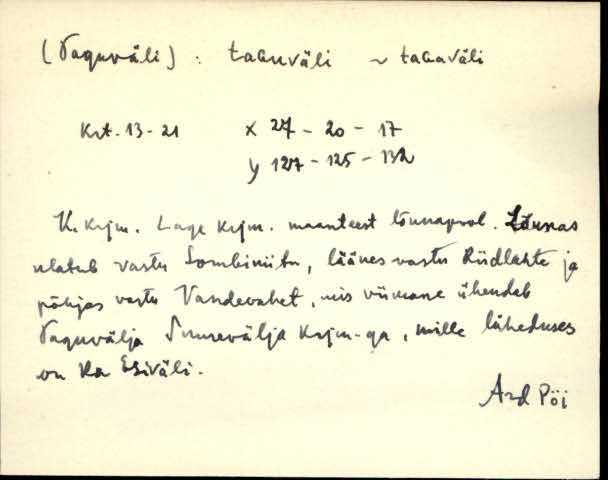 (Taguväli) : taɢuväli ~ taɢaväli
Krt. 13 - 21 x 27 - 20 - 17
y 127 - 125 - 132
K. krjm. Lage krjm. maanteest lõunapool. Lõunas
ulatub vastu Lombiniitu, läänes vastu Riidlahte ja
põhjas vastu Vandevahet, mis viimane ühendab
Taguvälja Suurevälja krjm-ga, mille läheduses
on ka Esiväli.
And Pöi